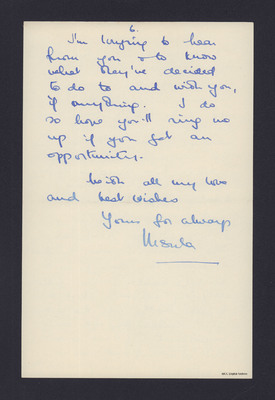 6.
I'm longing to hear
from you & to know
what they've decided
to do to and with you,
if anything. I do
so hope you'll ring me
up if you get an
opportunity.
With all my love
and best wishes
Yours for always
Ursula